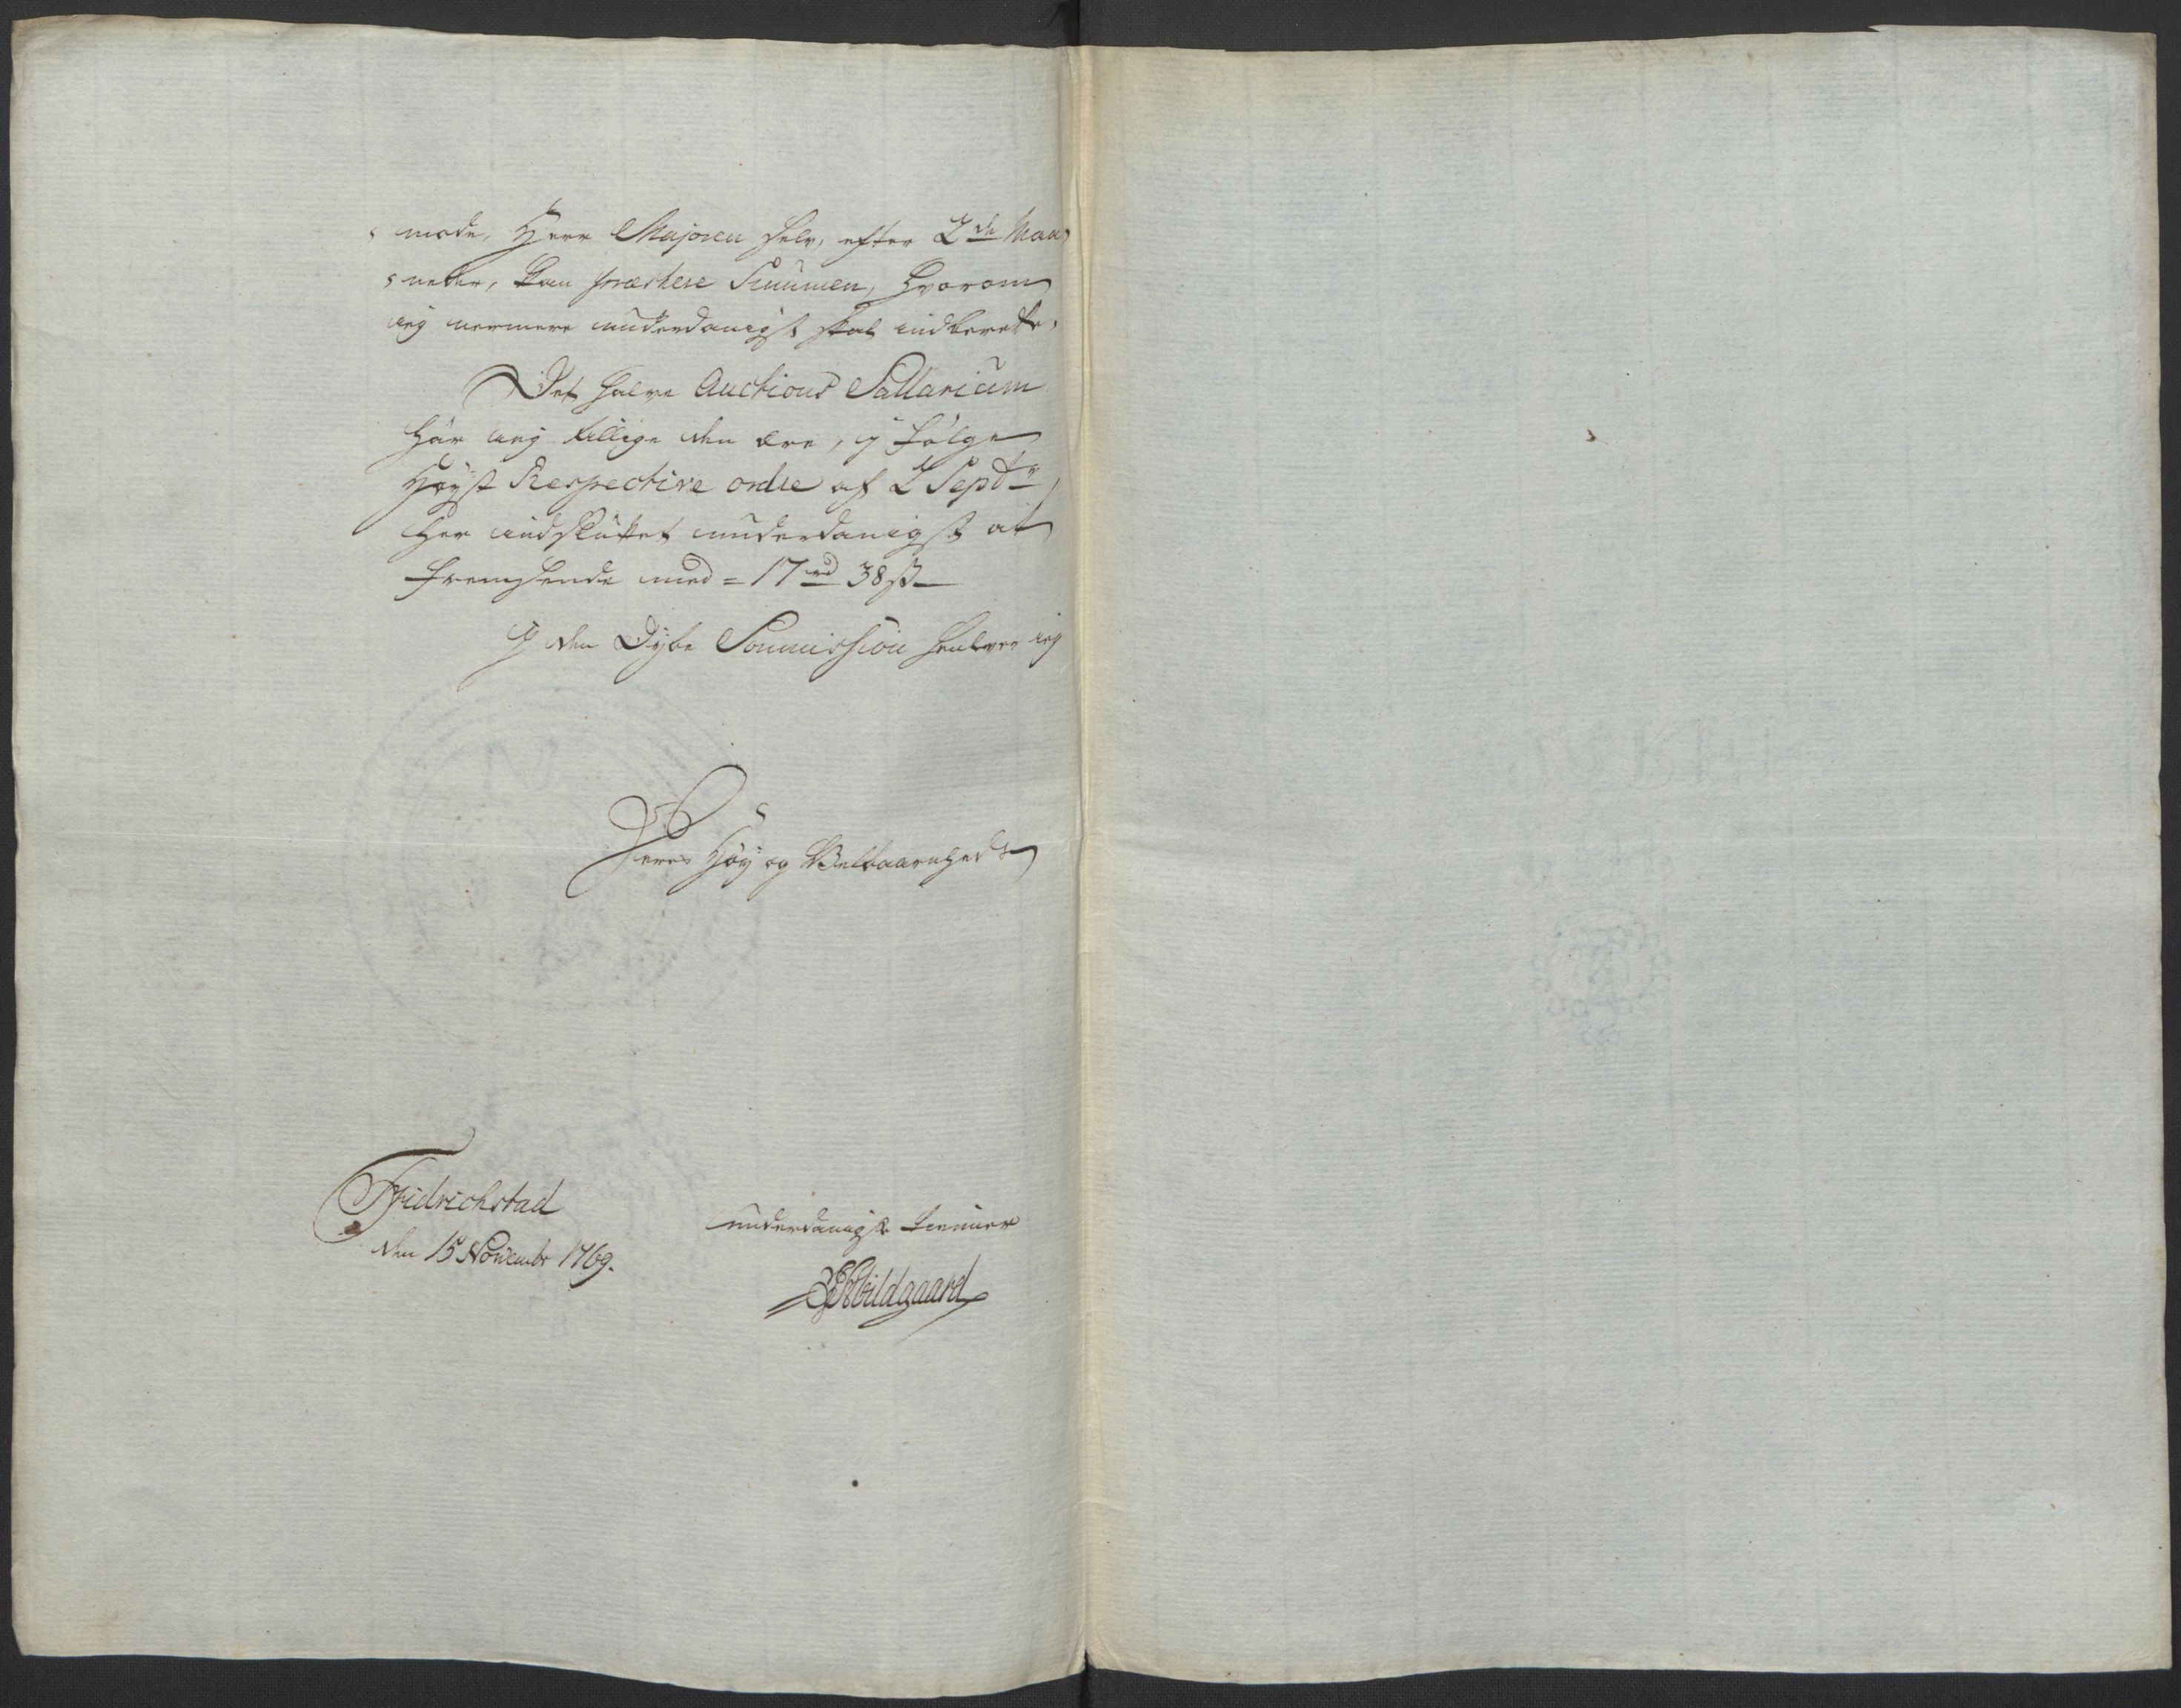 mode, Herr Majoren selv, efter 2de Maa
neder, kan præstere Summen, hvorom
ieg nermere underdanigst skal indberette.
Det halve Auctions Sallarium
har ieg tillige den ære, i følge
Høyst Respective ordre af 2 Septr
her indsluttet underdanigst at
fremsende med = 17 rd 38 s
I den Dybe Soumission henlever ieg
Deres Høy og Velbaarenheds
Fridrichstad
den 15 Novembr 1769.
underdanigste tienner
Abildgaard